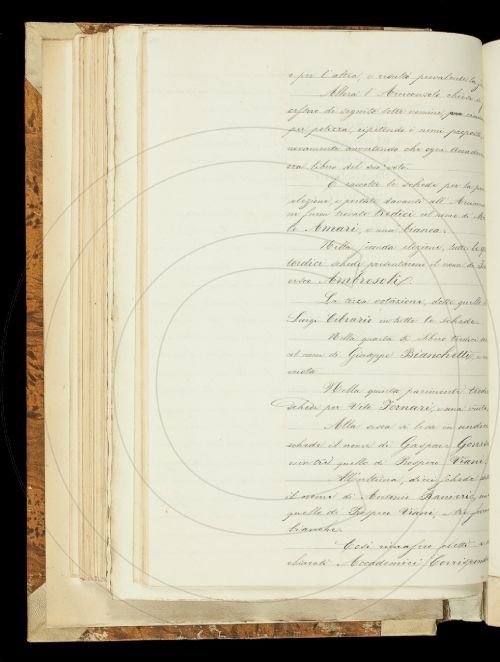 e per l'altra, e resultò prevalente la
Allora l'Arciconsolo chiese
per polizza, ripetendo i nomi proposti,
novamente avvertendo che ogni Accadem
era libero del suo voto.
E raccolte le schede per la
elezione, e portate davanti all'
ne furon trovate tredici col nome di
le Amari, e una bianca.
Nella seconda elezione, tutte le
tordici schede presentarono il nome di
cesco Ambrosoli.
La terza votazione, dette quello di
Luigi Cibrario in tutte le schede.
Nella quarta si ebbero tredici
col nome di Giuseppe Bianchetti, e
vuota.
Nella quinta parimente tredici
schede per Vito Fornari, e una vuota
Alla sesta si lesse in undici
schede il nome di Gaspare Goresio
e in tre quello di Prospero Viani.
All'ultima, dieci schede
il nome di Antonio Ranieri,
quello di Prospero Viani, e tre furon
bianche.
Così rimasero eletti e
chiarati Accademici Corrisponden